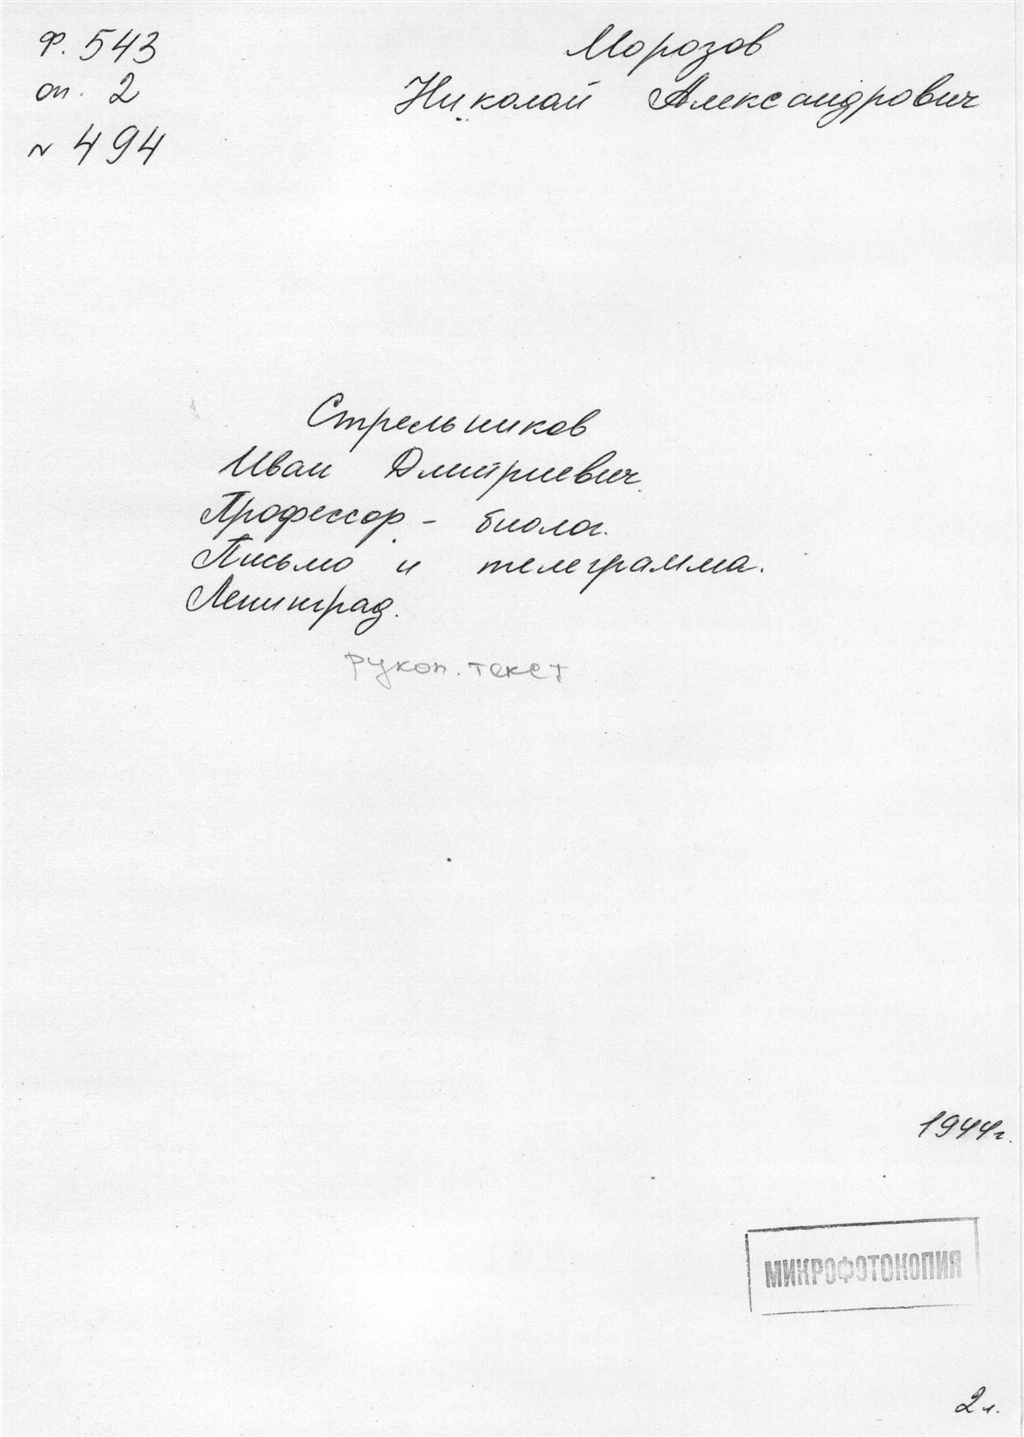 Ф. 543
оп. 2
N 494
Морозов
Николай Александрович
Стрельников
Иван Дмитриевич.
Профессор - биолог.
Письмо и телеграмма.
Ленинград.
рукоп. текст
1944г.
МИКРОФОТОКОПИЯ
2 л.